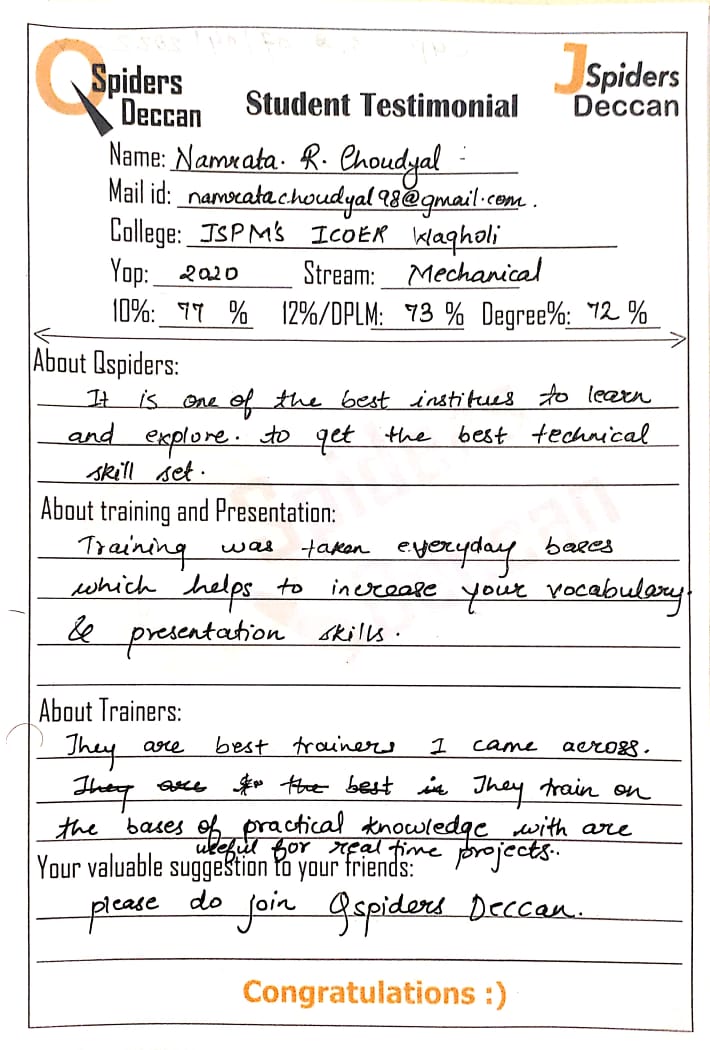 QSpiders Deccan
Student Testimonial
JSpiders Deccan
Name: Namrata. R. Choudyal
Mail id: namratachoudyal98@gmail.com.
College: JSPM's ICOER Wagholi
Yop: 2020 Stream: Mechanical
10%: 77 % 12%/DPLM: 73 % Degree%: 72 %
About Qspiders:
It is one of the best institues to learn
and explore. to get the best technical
skill set.
About training and Presentation:
Training was taken everyday bases
which helps to increase your vocabulary.
& presentation skills.
About Trainers:
They are best trainers I came across.
They are the best in They train on
the bases of practical knowledge with are
useful for real time projects..
Your valuable suggestion to your friends:
please do join Qspiders Deccan.
Congratulations :)